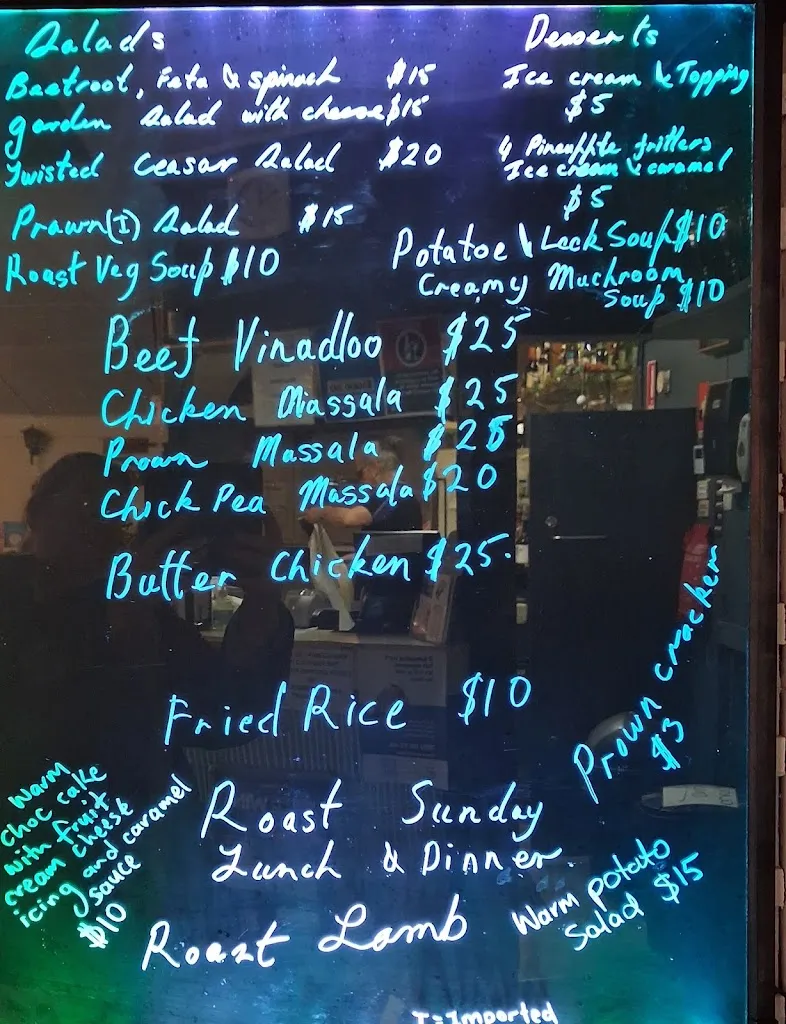 Salads
Beetroot, Feta & spinach $15
garden salad with cheese $15
Twisted Ceasar Salad $20
Prawn(I) Salad $15
Roast Veg Soup $10
Desserts
Ice cream & Topping
$5
4 Pineapple fritters
Ice cream & caramel
$5
Potatoe & Leek Soup $10
Creamy Muchroom
Soup $10
Beef Vinadloo $25
Chicken Massala $25
Prown Massala $25
Chick Pea Massala $20
Butter Chicken $25.
Fried Rice $10
Prown cracker
$3
Warm
choc cake
with fruit
cream cheese
icing and caramel
sauce
$10
Roast Sunday
Lunch & Dinner
Roast Lamb
Warm potato
Salad $15
I=Imported